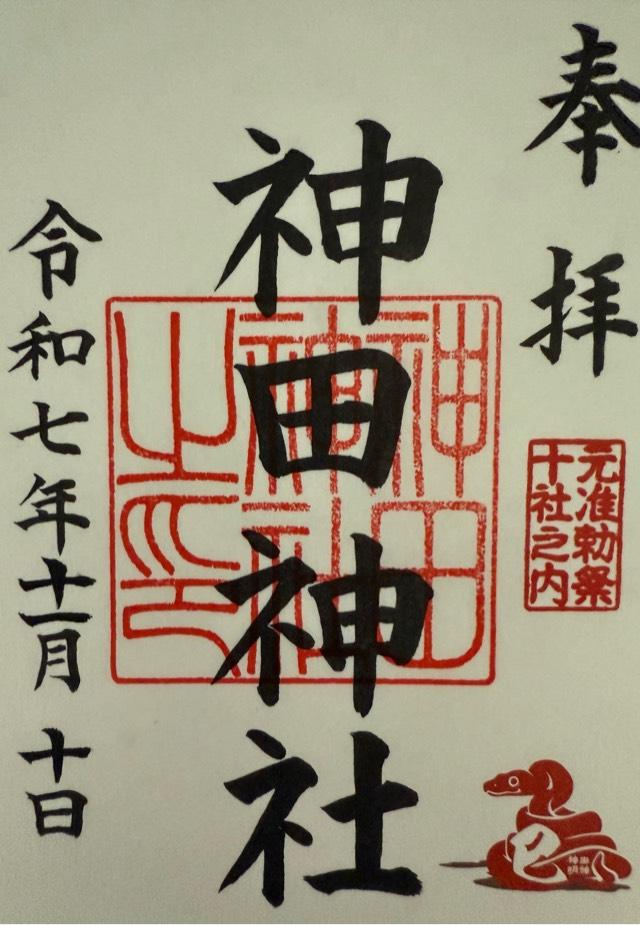 奉拝
元准勅祭
十社之内
神田神社
神田
神社
之印
令和七年十一月十日
巳